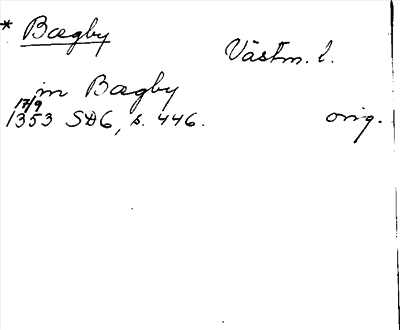 * Bægby
Västm. l.
in Bægby
17/9
1353 SD6, s. 446. orig.